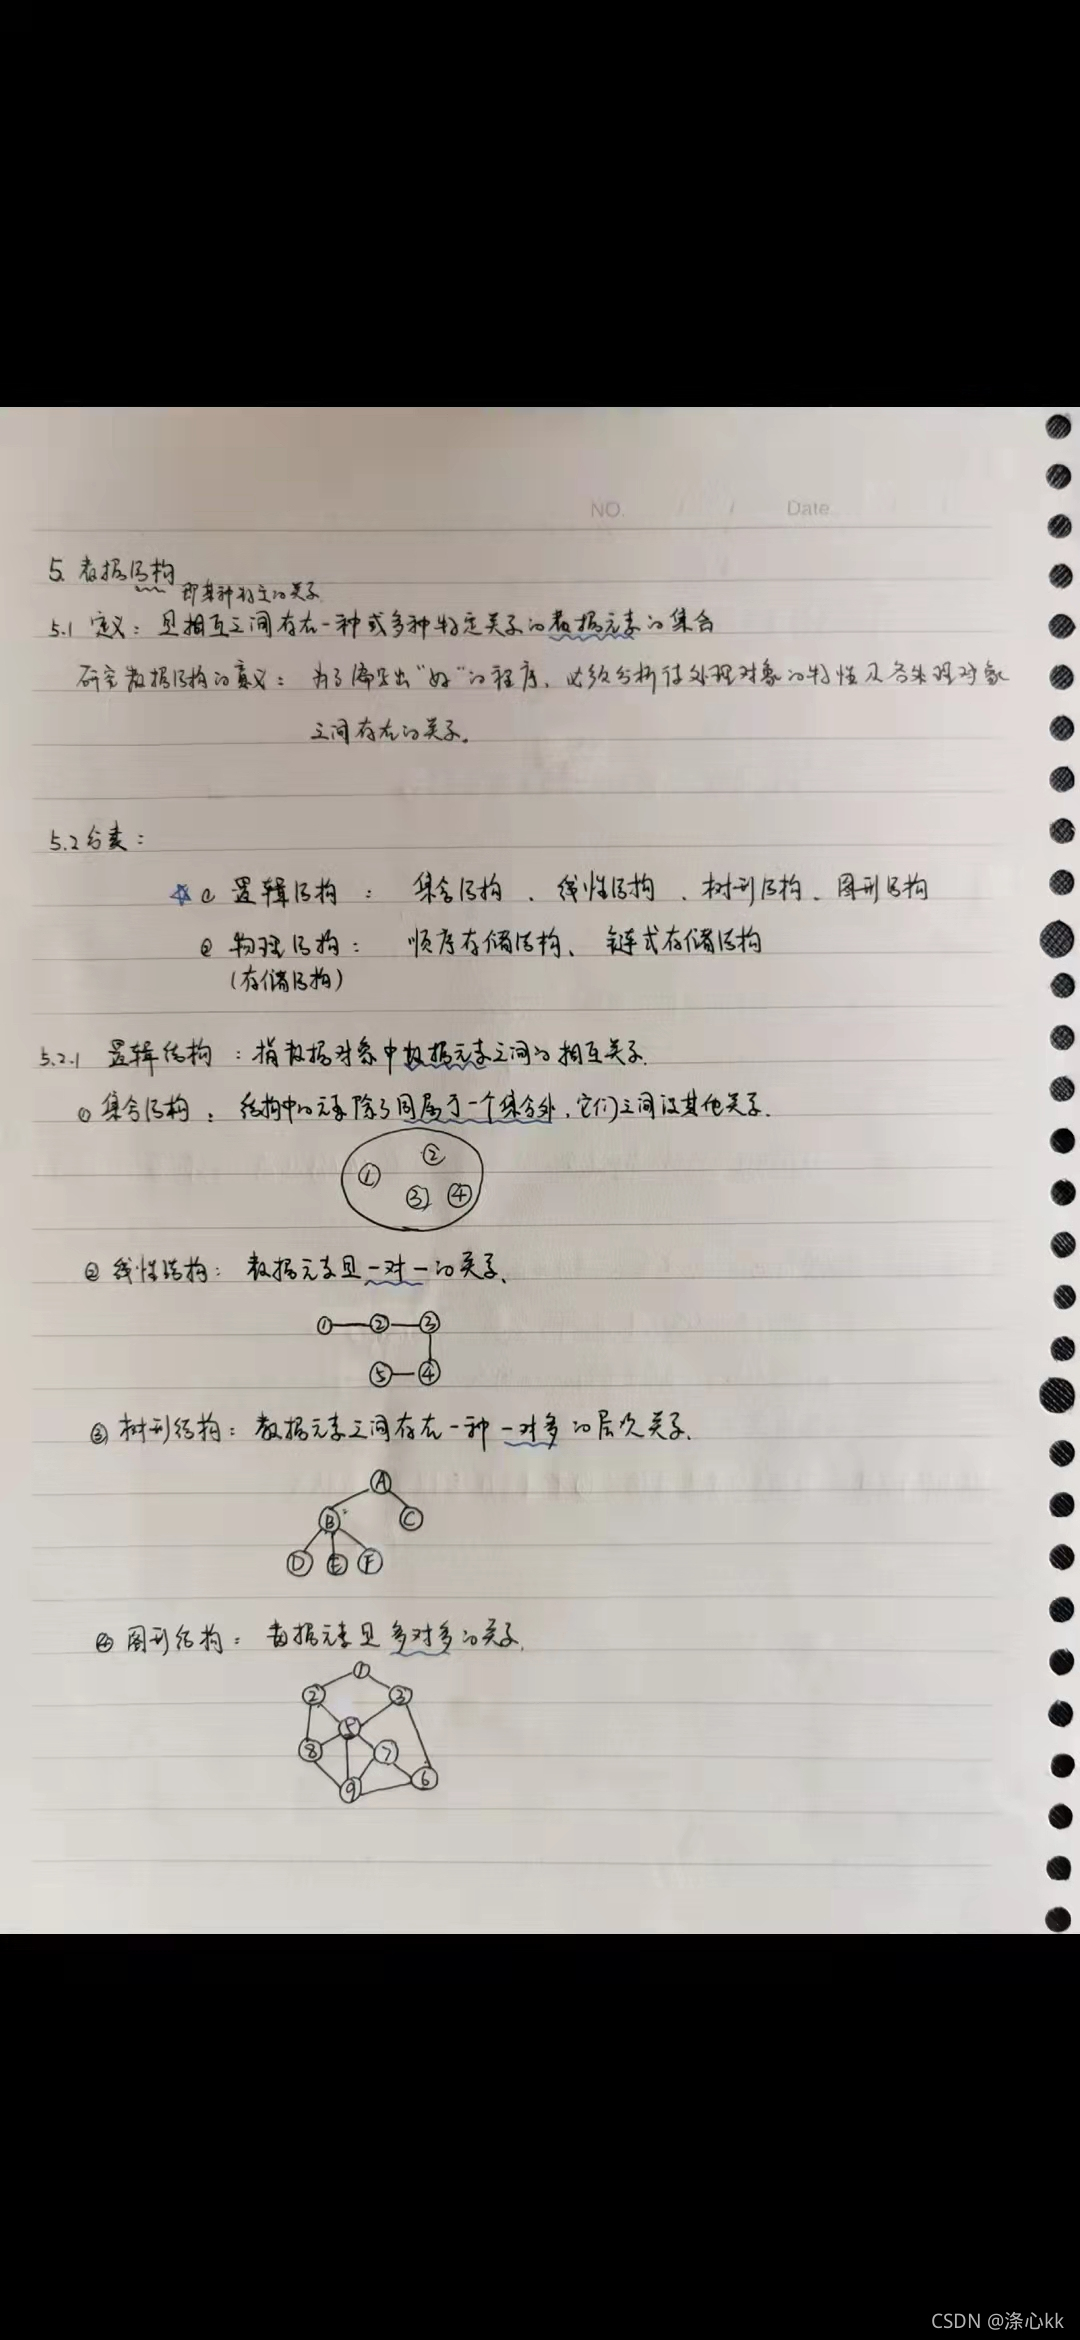 NO. / Date
5. 数据结构 即某种特定的关系
5.1 定义：是相互之间存在一种或多种特定关系的数据元素的集合
研究数据结构的意义：为了编写出“好”的程序，必须分析待处理对象的特性及各处理对象
之间存在的关系。
5.2 分类：
☆ ① 逻辑结构：集合结构、线性结构、树形结构、图形结构
② 物理结构：顺序存储结构、链式存储结构
(存储结构)
5.2.1 逻辑结构：指数据对象中数据元素之间的相互关系.
① 集合结构：结构中的元素除了同属于一个集合外，它们之间没其他关系.
②
①
③ ④
② 线性结构：数据元素是一对一的关系.
① ② ③
⑤ ④
③ 树形结构：数据元素之间存在一种一对多的层次关系.
A
B C
D E F
④ 图形结构：数据元素是多对多的关系.
①
② ③
5
⑧ ⑦
⑨ ⑥
CSDN @涤心kk